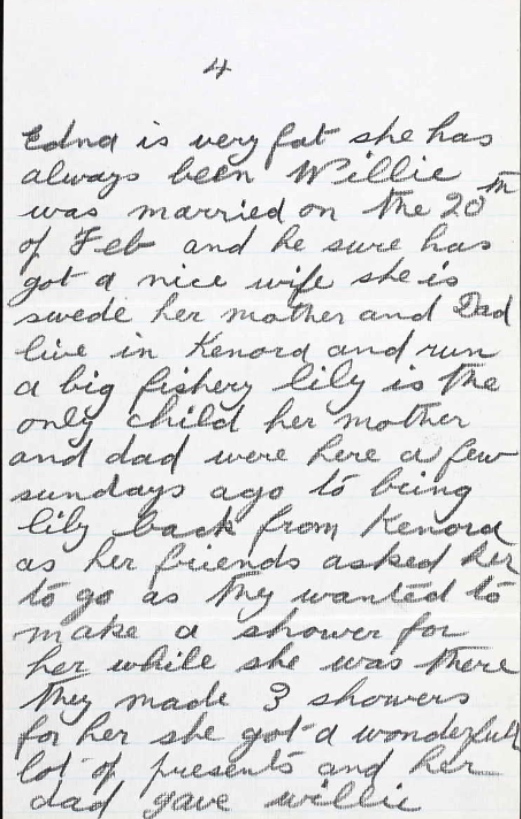 4
Edna is very fat she has
always been Willie
was married on the 20th
of Feb and he sure has
got a nice wife she is
swede her mother and Dad
live in Kenora and run
a big fishery lily is the
only child her mother
and dad were here a few
sundays ago to being
lily back from Kenora
as her friends asked her
to go as they wanted to
make a shower for
her while she was there
they made 3 showers
for her she got a wonderfull
lot of presents and her
dad gave willie